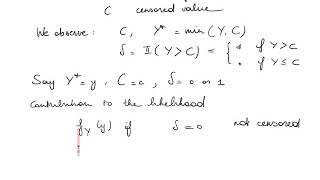 C censored value
We observe : C, Y* = min (Y, C)
δ = 𝕀 (Y > C) = { 1 if Y > C
0 if Y ≤ C
Say Y* = y, C = c, δ = 0 or 1
contribution to the likelihood
f_Y (y) if δ = 0 not censored